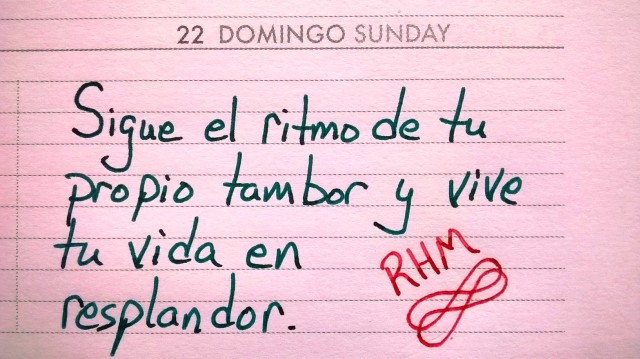 22 DOMINGO SUNDAY
Sigue el ritmo de tu
propio tambor y vive
tu vida en
resplandor.
RHM